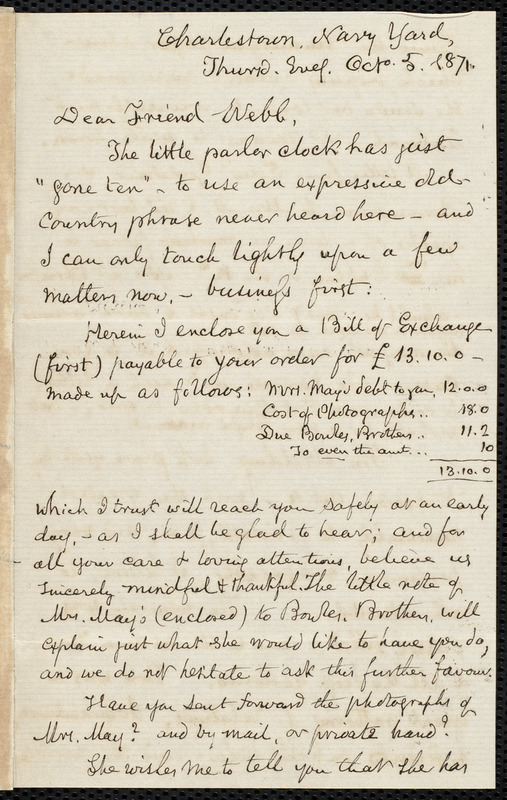 Charlestown, Navy Yard,
Thursd. Eveg. Octo. 5. 1871.
Dear Friend Webb,
The little parlor clock has just
"gone ten" - to use an expressive old-
Country phrase never heard here - and
I can only touch lightly upon a few
matters now, - business first:
Herein I enclose you a Bill of Exchange
(first) payable to your order for £ 13.10.0 -
made up as follows: Mrs. May's debt to you, 12.0.0
Cost of Photographs.. 18.0
Due Bowles, Brothers.. 11.2
To even the amt... 10
13.10.0
which I trust will reach you safely at an early
day, - as I shall be glad to hear; and for
all your care & loving attentions, believe us
sincerely mindful & thankful. The little note of
Mrs. May's (enclosed) to Bowles, Brothers, will
explain just what she would like to have you do,
and we do not hesitate to ask this further favour.
Have you sent forward the photographs of
Mrs. May? and by mail, or private hand?
She wishes me to tell you that she has